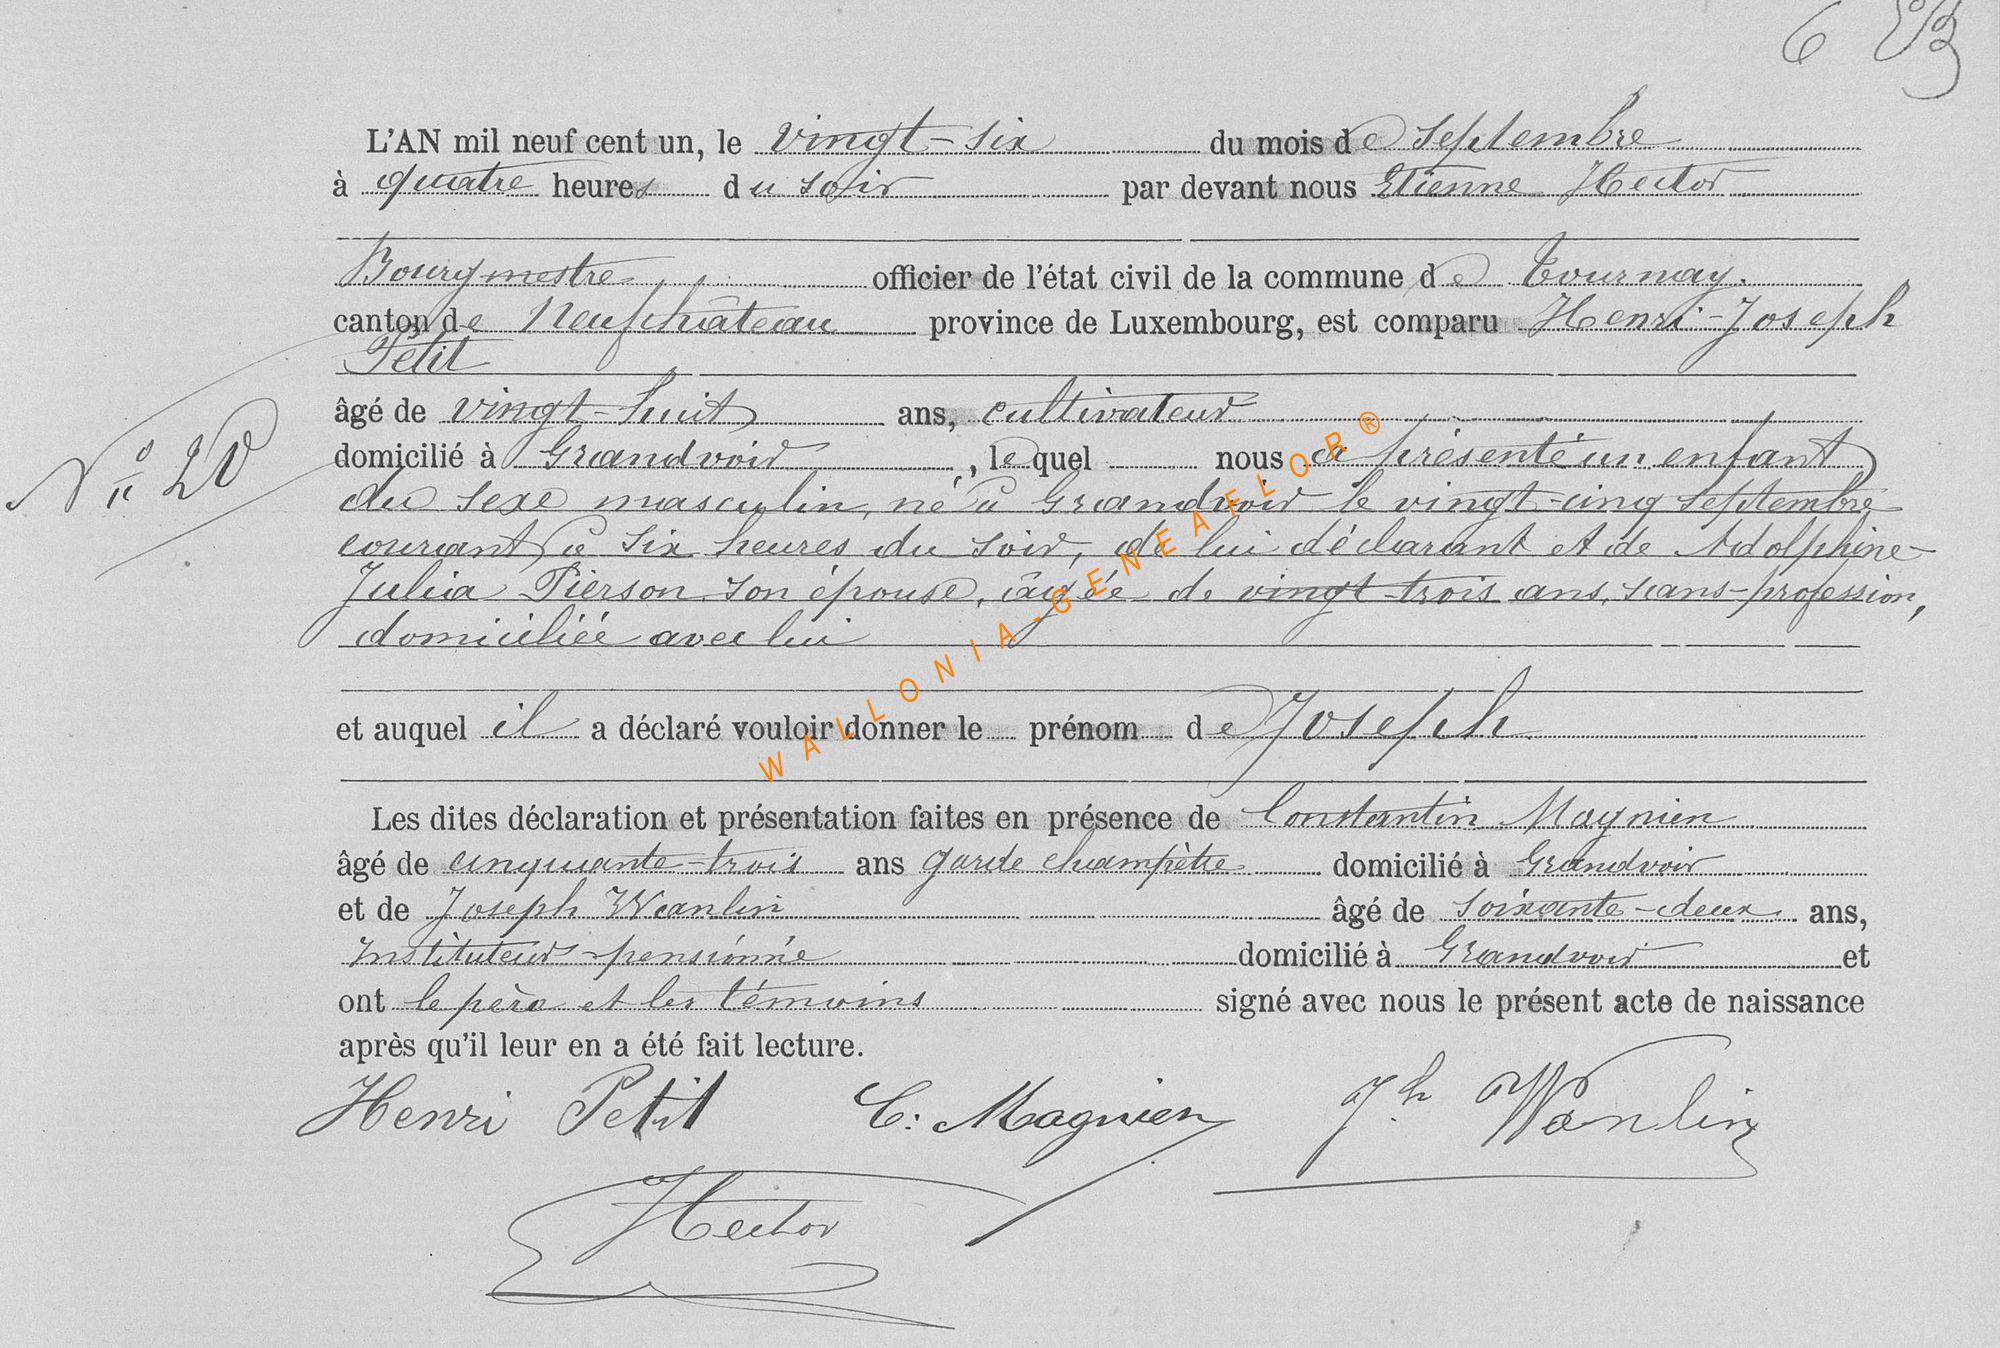 6
L'AN mil neuf cent un, le vingt-six du mois de septembre
à quatre heures du soir par devant nous Etienne Hector
Bourgmestre officier de l'état civil de la commune de Tournay.
canton de Neufchâteau province de Luxembourg, est comparu Henri-Joseph
Petit
âgé de vingt-huit ans, cultivateur
N° 20
domicilié à Grandvoir, lequel nous a présenté un enfant
du sexe masculin, né à Grandvoir le vingt-cinq septembre
courant à six heures du soir, de lui déclarant et de Adolphine-
Julia Pierson son épouse, âgée de vingt-trois ans, sans-profession,
domiciliée avec lui
et auquel il a déclaré vouloir donner le prénom de Joseph.
Les dites déclaration et présentation faites en présence de Constantin Magnien
âgé de cinquante-trois ans garde champêtre domicilié à Grandvoir
et de Joseph Wanlin âgé de soixante-deux ans,
Instituteur-pensionné domicilié à Grandvoir et
ont le père et les témoins signé avec nous le présent acte de naissance
après qu'il leur en a été fait lecture.
Henri Petit C: Magnien Jh Wanlin
Hector
WALLONIA-GENEAFLOR®